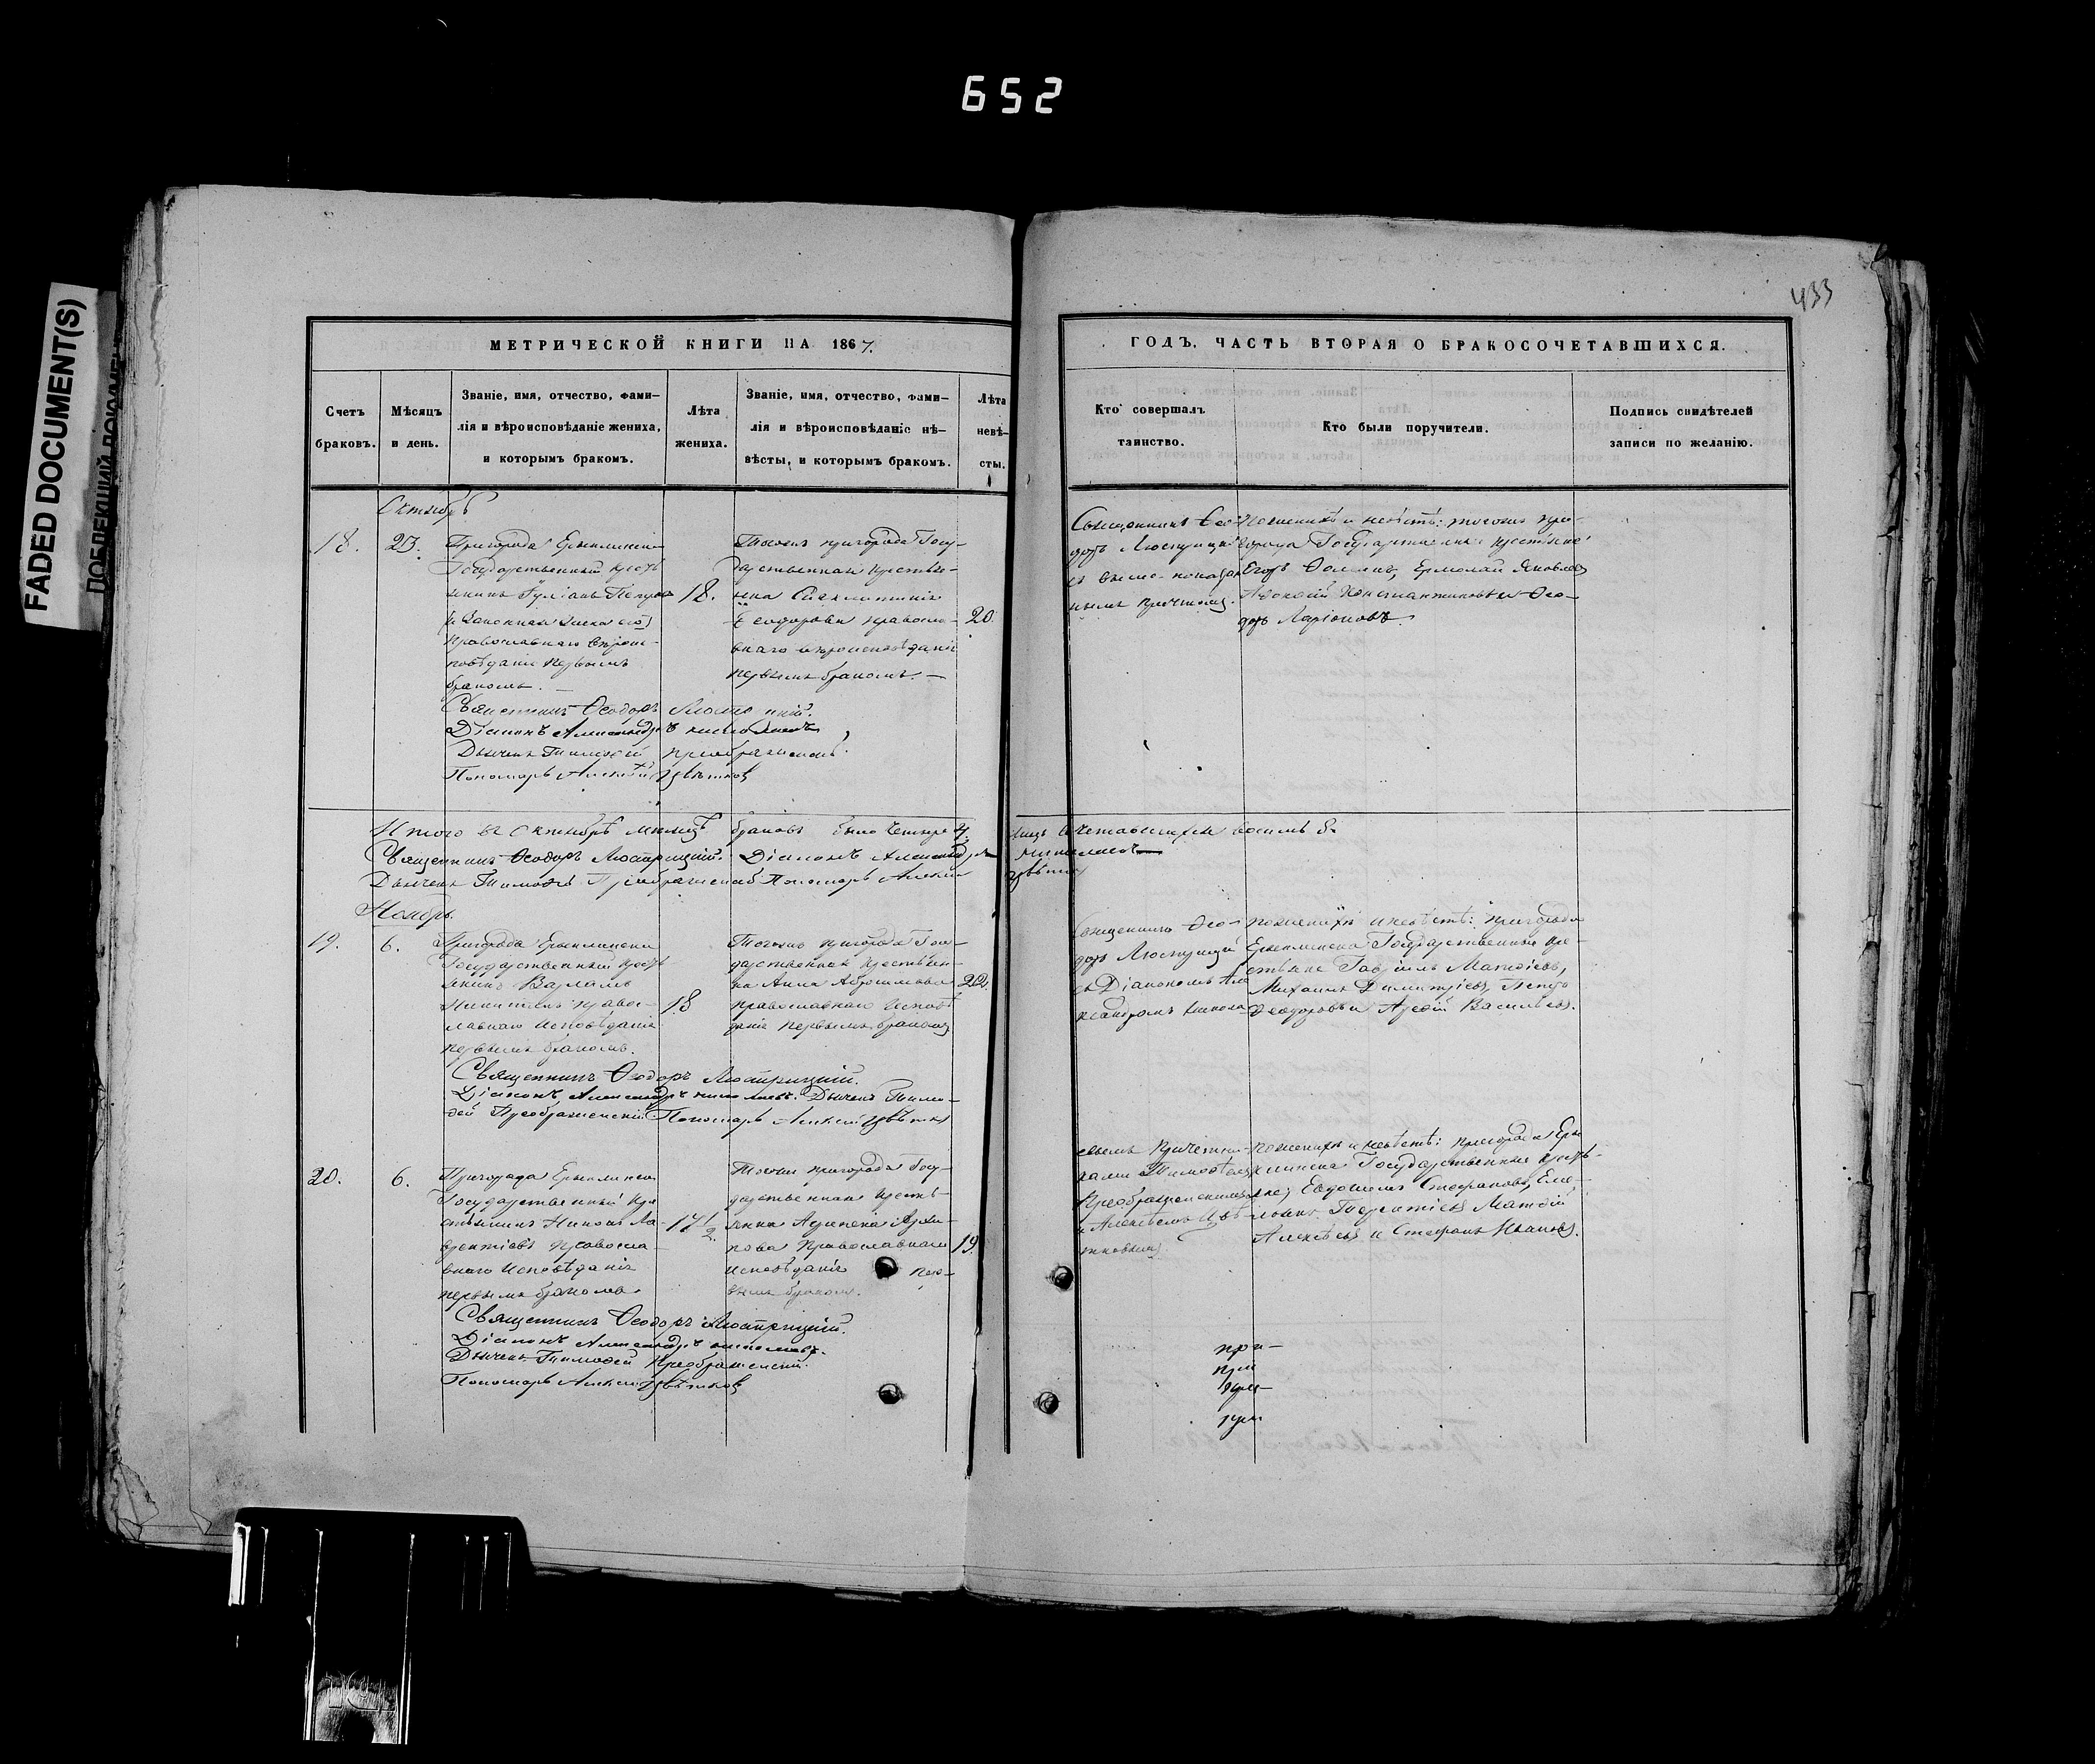 652
FADED DOCUMENT(S)
433
МЕТРИЧЕСКОЙ КНИГИ НА 1867.
ГОДЪ, ЧАСТЬ ВТОРАЯ О БРАКОСОЧЕТАВШИХСЯ.
Счетъ
браковъ.
Мѣсяцъ
и день.
Званіе, имя, отчество, фами-
лія и вѣроисповѣданіе жениха,
и которымъ бракомъ.
Лѣта
жениха.
Званіе, имя, отчество, фами-
лія и вѣроисповѣданіе нѣ-
вѣсты, и которымъ бракомъ.
Лѣта
невѣ-
сты.
Кто совершалъ
таинство.
Кто были поручители.
Подпись свидѣтелей
записи по желанію.
Октябрь
18.
23.
Пригорода Ерыклинска
Государственный кресть
янинъ Іуліанъ Петровъ
православнаго вѣроис-
повѣданія первымъ
бракомъ.
18.
Тогоже пригорода Госу-
дарственная крестья-
нка
Ѳеодорова правосла-
внаго вѣроисповѣданія
первымъ бракомъ.
20.
Священникъ Ѳео-
доръ Люстрицкій
съ выше-показан
нымъ причтомъ.
По женихѣ и невѣстѣ: тогоже при-
города Государственные крестьяне
Егоръ Ѳоминъ, Ермолай Яковлевъ
Константиновъ и Ѳео-
доръ Ларіоновъ.
Священникъ Ѳеодоръ Люстрицкій.
Діаконъ Александръ Николаевъ
Дьячекъ Тимоѳей Преображенскій
Пономарь Алексѣй Цвѣтков
Итого въ Октябрѣ мѣсяцѣ браковъ было четыре 4. лицъ сочетавшихся восемь 8.
Священникъ Ѳеодоръ Люстрицкій. Діаконъ Александръ Николаевъ
Дьячекъ Тимоѳей Преображенскій Пономарь Алексѣй Цвѣтков
Ноябрь.
19.
6.
Пригорода Ерыклинска
Государственный кресть
янинъ Варламъ
Никитинъ право-
славнаго исповѣданія
первымъ бракомъ.
18
Тогоже пригорода Госу-
дарственная крестьян-
ка Анна Абрамова
православнаго исповѣ
данія первымъ бракомъ
22.
Священникъ Ѳео-
доръ Люстрицкій
съ Діакономъ Але
ксандромъ Никола
По женихѣ и невѣстѣ: пригорода
Ерыклинска Государственные кре-
стьяне Гавріилъ Матвіевъ,
Михаилъ Димитріевъ, Петръ
Ѳеодоровъ и Васильевъ.
Священникъ Ѳеодоръ Люстрицкій.
Діаконъ Александръ Николаевъ. Дьячекъ Тимо-
ѳей Преображенскій. Пономарь Алексѣй Цвѣтков
20.
6.
Пригорода Ерыклинска
Государственный кре
стьянинъ Никонъ Ла-
врентіевъ правосла-
внаго исповѣданія
первымъ бракомъ.
17 1/2
Тогоже пригорода Госу-
дарственная кресть-
янка Архи-
пова православнаго
исповѣданія пер-
вымъ бракомъ.
19.
евымъ причетни-
ками Тимоѳеемъ
Преображенскимъ
и Алексѣемъ Цвѣ-
тковымъ
По женихѣ и невѣстѣ: пригорода Еры
клинска Государственные кресть-
яне; Евдокимъ Стефановъ, Еме-
льянъ Терентіевъ Матвій
Алексѣевъ и Стефанъ Ивановъ.
Священникъ Ѳеодоръ Люстрицкій.
Діаконъ Александръ Николаевъ.
Дьячекъ Тимоѳей Преображенскій.
Пономарь Алексѣй Цвѣтков
при-
при